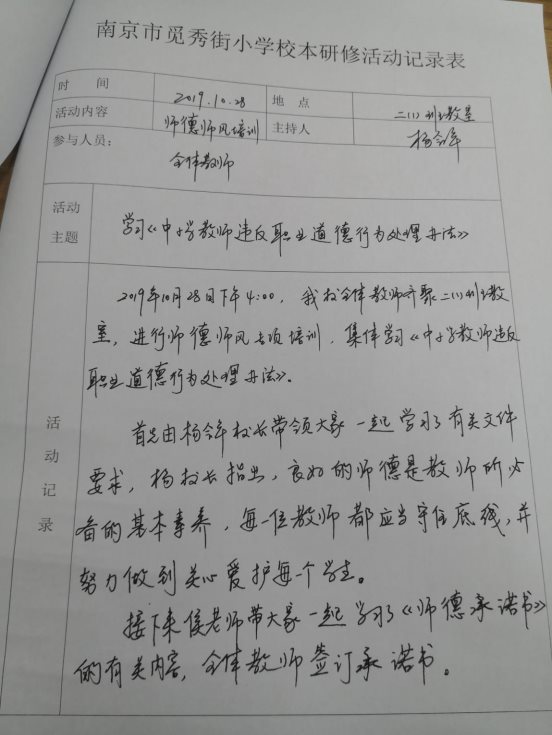 南京市觅秀街小学校本研修活动记录表
时 间 2019.10.28 地 点 二(1)班教室
活动内容 师德师风培训 主持人
参与人员：
全体教师
活动
主题
学习《中小学教师违反职业道德行为处理办法》
2019年10月28日下午4:00，我校全体教师齐聚二(1)班教
室，进行师德师风专项培训，集体学习《中小学教师违反
职业道德行为处理办法》。
活动记录
首先由杨校长带领大家一起学习了有关文件
要求，杨校长指出，良好的师德是教师所必
备的基本素养，每一位教师都应当守住底线，并
努力做到关心爱护每一个学生。
接下来侯老师带大家一起学习了《师德承诺书》
的有关内容，全体教师签订承诺书。